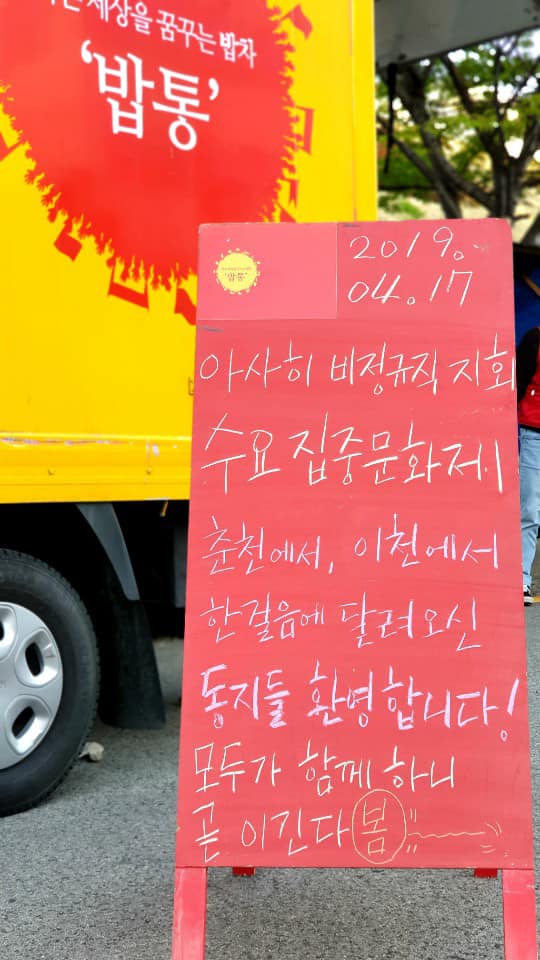 세상을 꿈꾸는 밥차
'밥통'
'밥통'
2019.
04.17
아사히 비정규직 지회
수요 집중문화제
춘천에서, 이천에서
한걸음에 달려오신
동지들 환영합니다!
모두가 함께 하니
곧 이긴다 봄